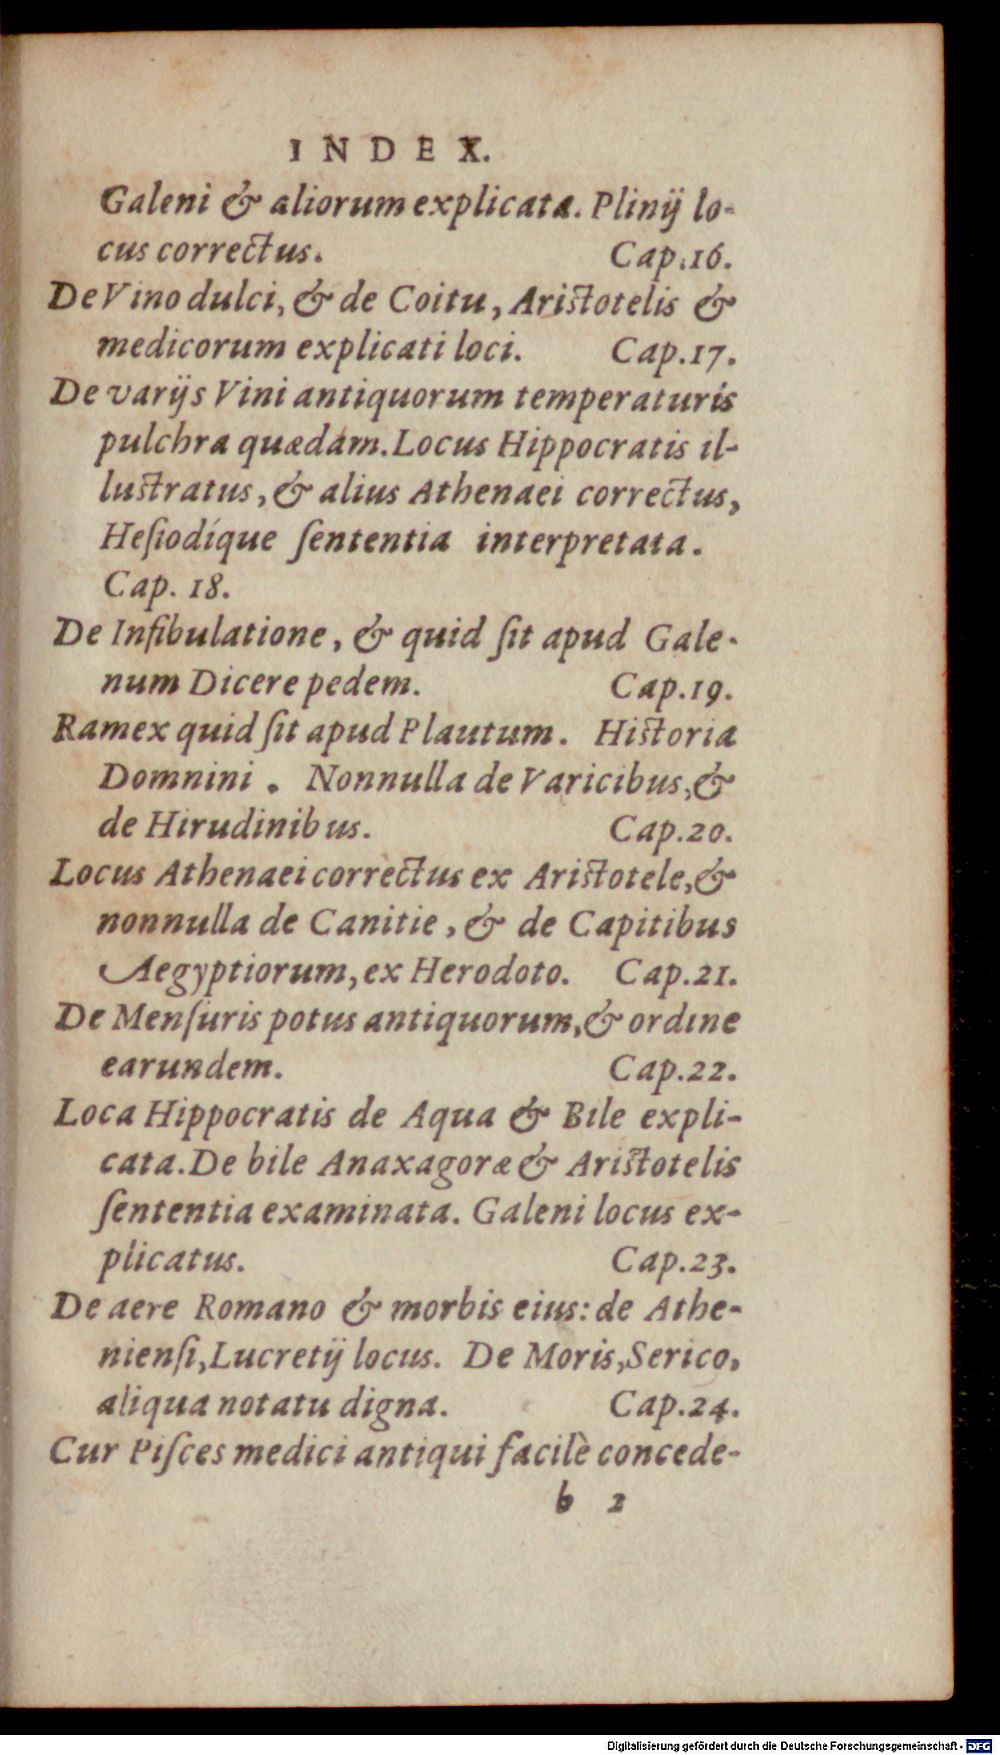 INDEX.
Galeni & aliorum explicata. Plinij lo-
cus correctus. Cap.16.
De Vino dulci, & de Coitu, Aristotelis &
medicorum explicati loci. Cap.17.
De varijs Vini antiquorum temperaturis
pulchra quædam. Locus Hippocratis il-
lustratus, & alius Athenaei correctus,
Heſiodíque ſententia interpretata.
Cap. 18.
De Infibulatione, & quid ſit apud Gale-
num Dicere pedem. Cap.19.
Ramex quid ſit apud Plautum. Historia
Domnini. Nonnulla de Varicibus, &
de Hirudinibus. Cap.20.
Locus Athenaei correctus ex Aristotele, &
nonnulla de Canitie, & de Capitibus
Aegyptiorum, ex Herodoto. Cap.21.
De Menſuris potus antiquorum, & ordine
earundem. Cap.22.
Loca Hippocratis de Aqua & Bile expli-
cata. De bile Anaxagoræ & Aristotelis
ſententia examinata. Galeni locus ex-
plicatus. Cap.23.
De aere Romano & morbis eius: de Athe-
nienſi, Lucretij locus. De Moris, Serico,
aliqua notatu digna. Cap.24.
Cur Piſces medici antiqui facilè concede-
b 2
Digitalisierung gefördert durch die Deutsche Forschungsgemeinschaft - DFG